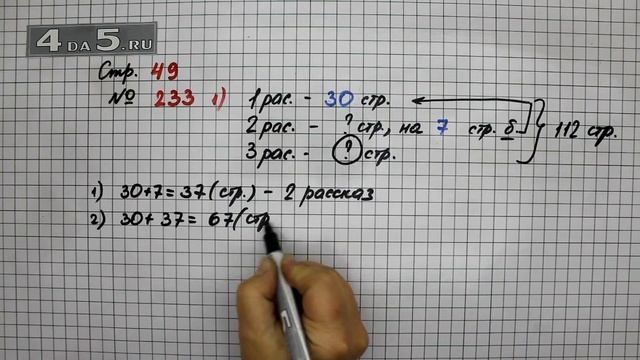 4 DA 5.RU
Стр. 49
№ 233 1) 1 рас. - 30 стр.
2 рас. - ? стр., на 7 стр. б. 112 стр.
3 рас. - ? стр.
1) 30+7=37(стр.) - 2 рассказ
2) 30+37= 67(стр